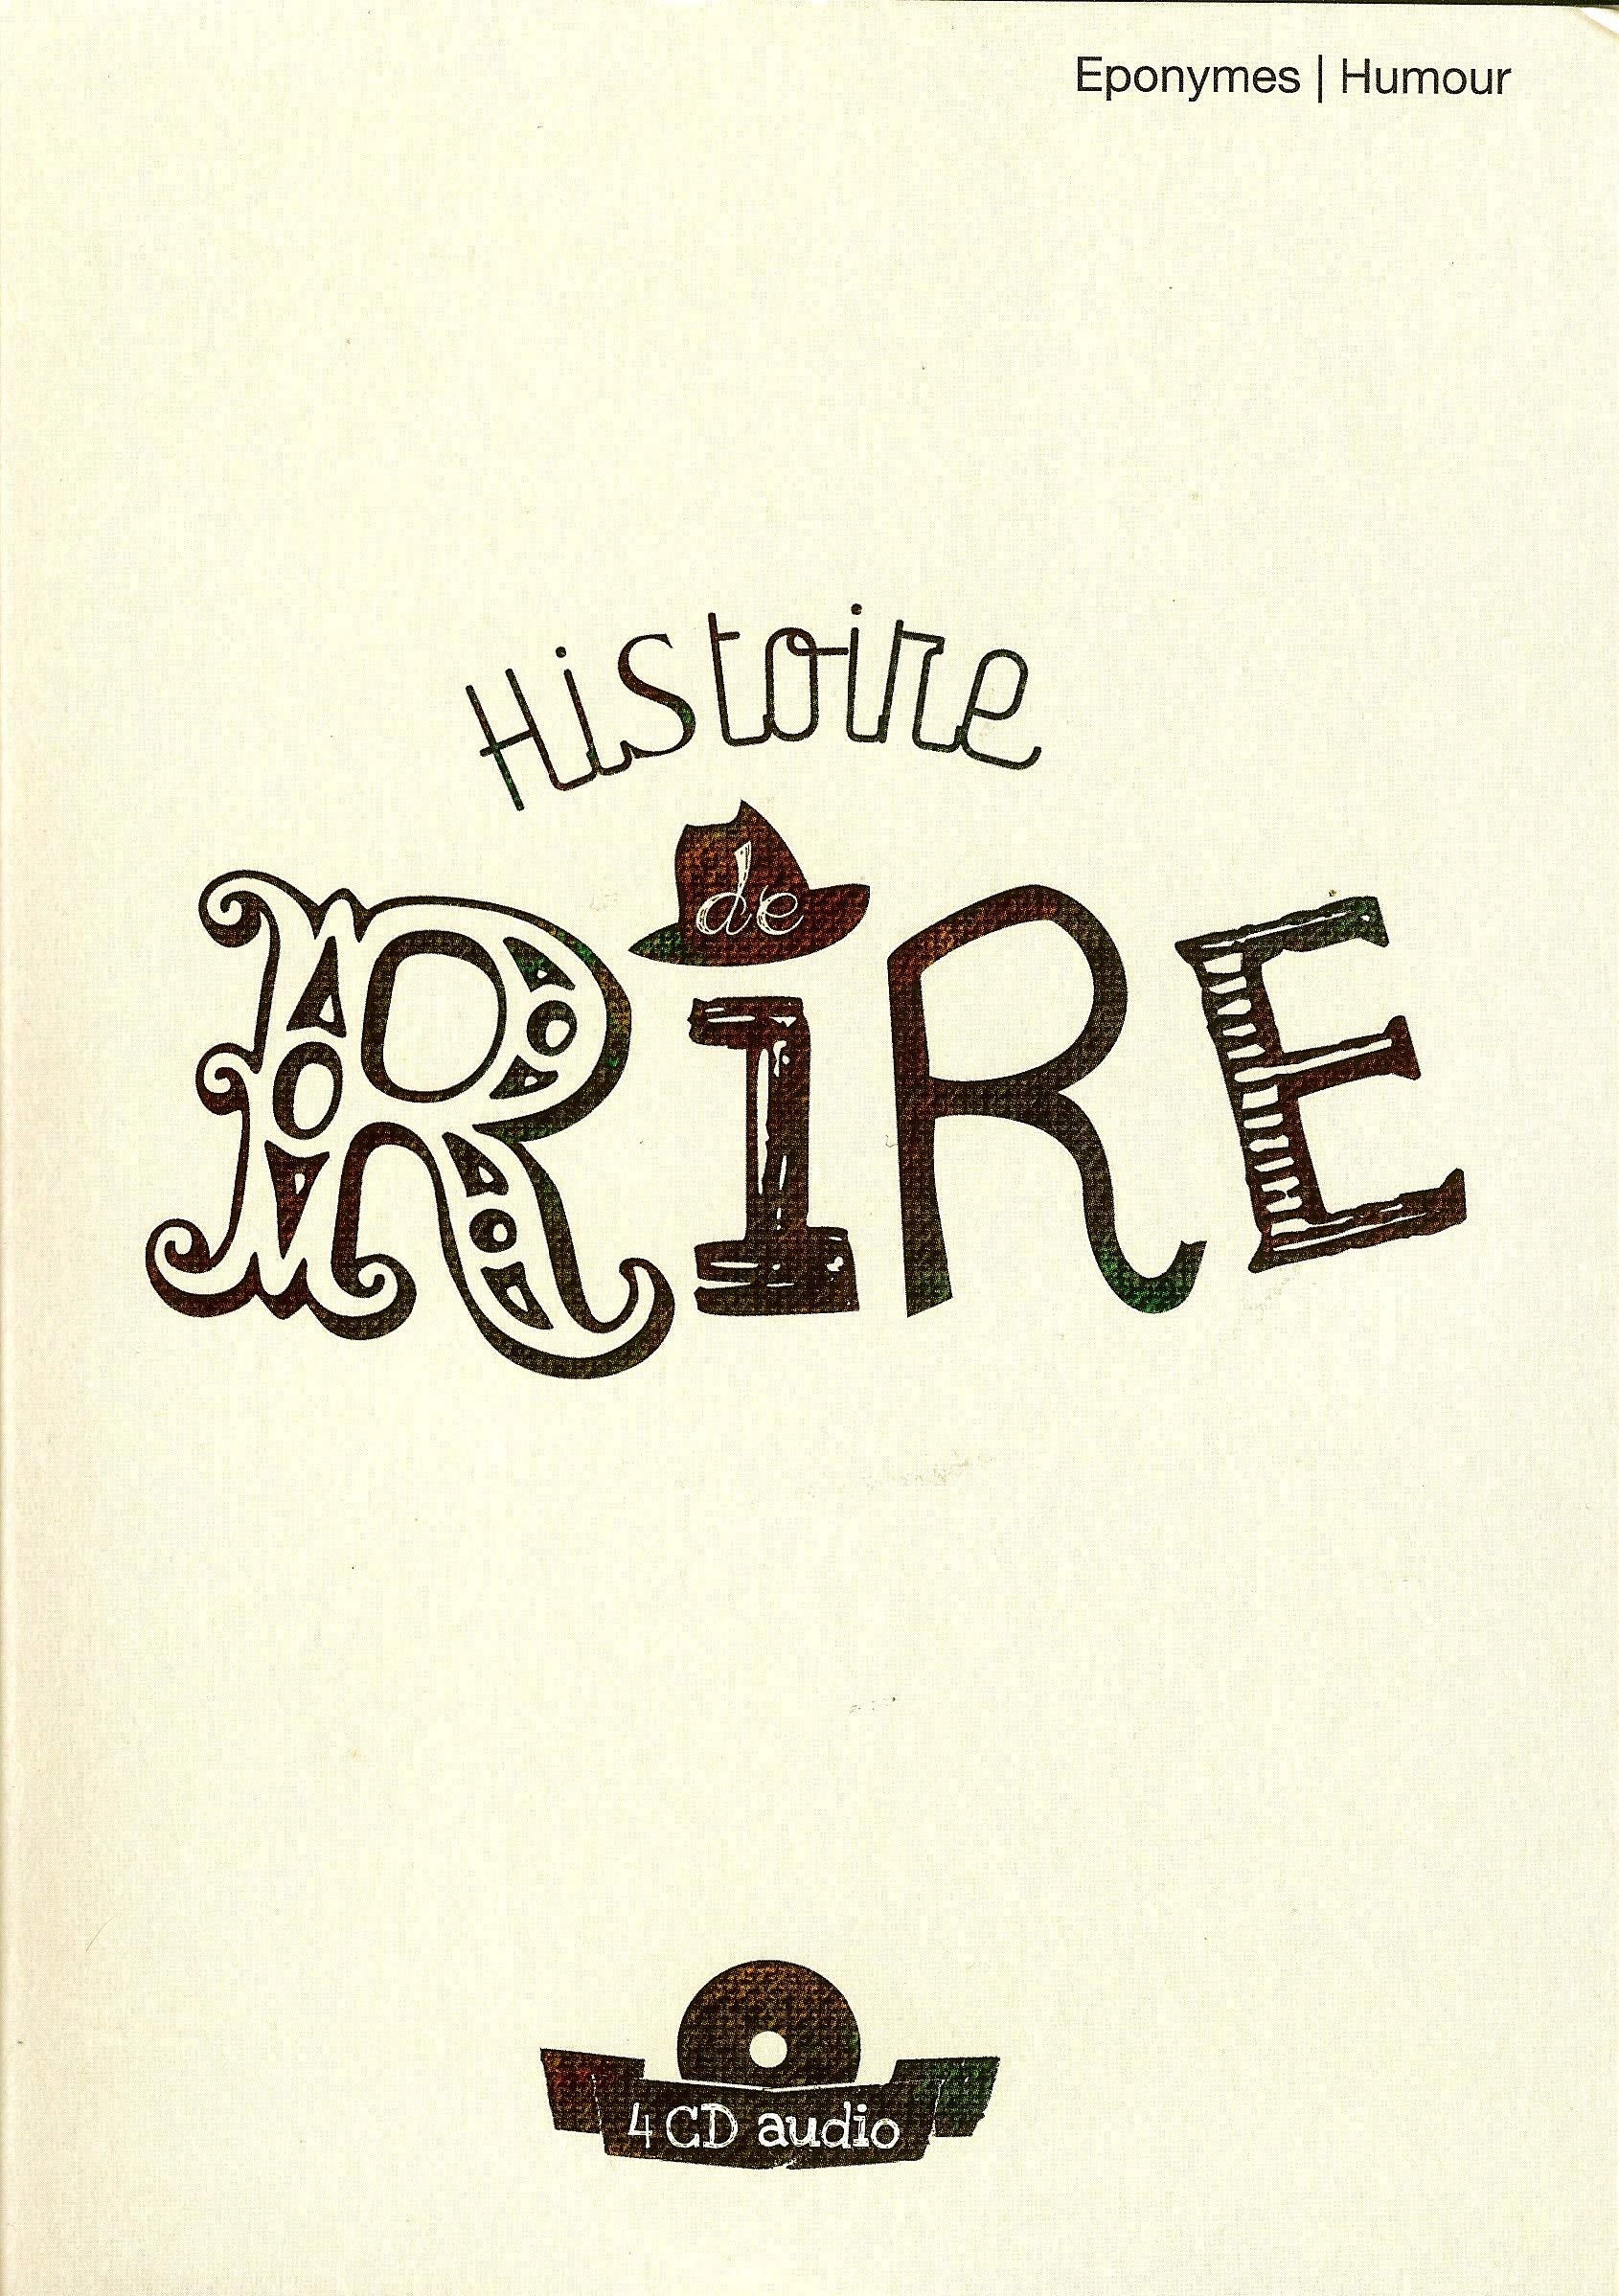 Eponymes | Humour
Histoire
de
RiRE
4 CD audio